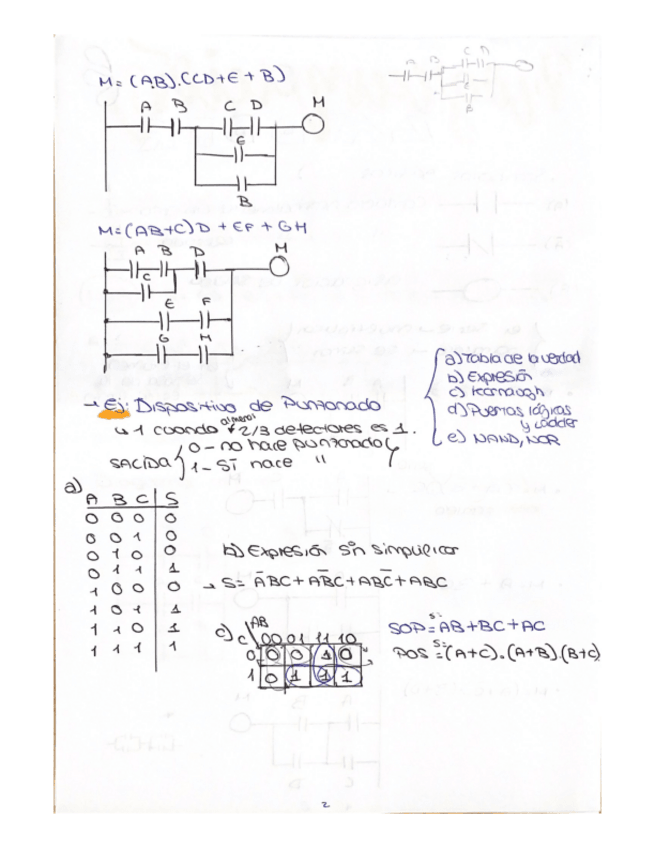 M = (A.B).(CD+E+B)
A B C D M
E
B
C D
A B
E
B
M=(AB+C)D + EF + GH
A B D M
C
E F
G H
a) Tabla de la verdad
b) Expresión
c) Karnaugh
d) Puertas lógicas
y Ladder
e) NAND, NOR
→ Ej: Dispositivo de Punzonado
al menos
↳ 1 cuando 2/3 detectores es 1.
SALIDA { 0 - no hace punzonado
1 - SÍ hace "
a)
A B C S
0 0 0 0
0 0 1 0
0 1 0 0
0 1 1 1
1 0 0 0
1 0 1 1
1 1 0 1
1 1 1 1
b) Expresión sin simplificar
→ S = A̅BC + AB̅C + ABC̅ + ABC
c) C \ AB 00 01 11 10
0 0 0 1 0
1 0 1 1 1
SOP = S = AB + BC + AC
POS = S = (A+C).(A+B).(B+C)
2